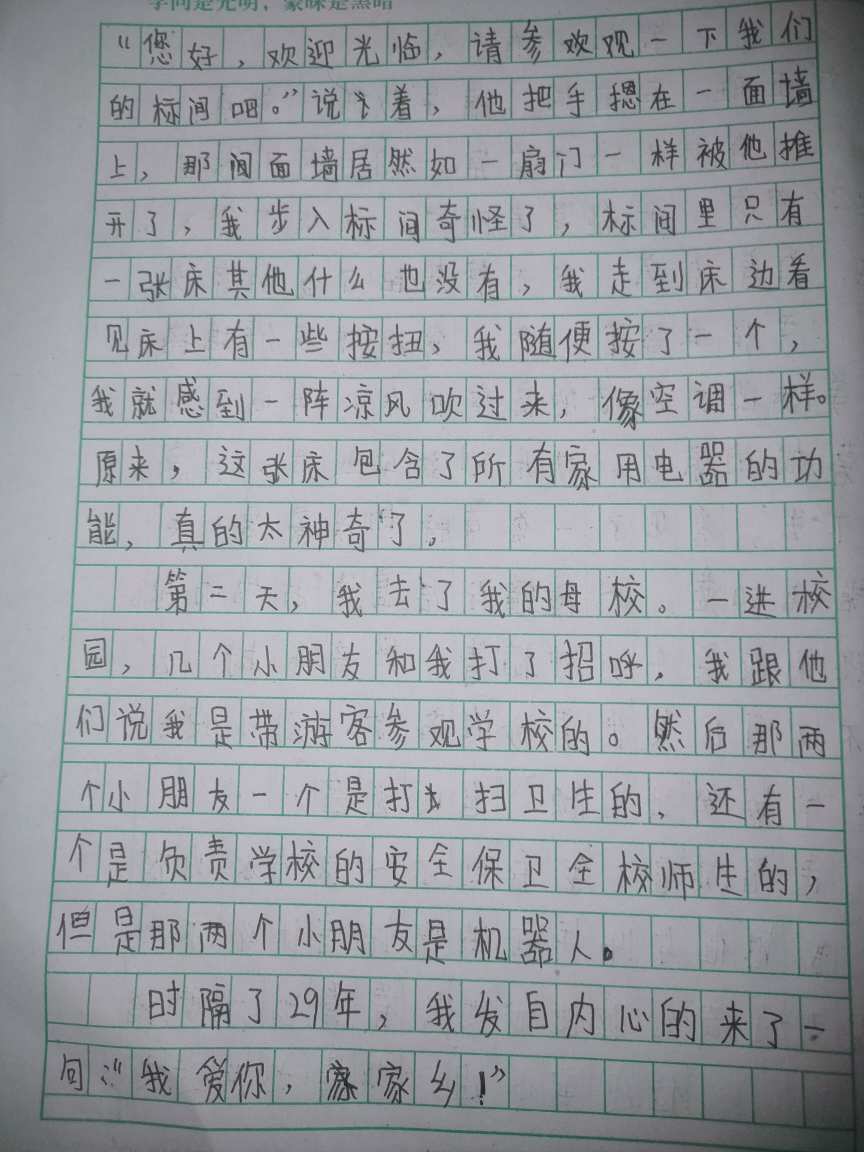 学问是光明，蒙昧是黑暗
“您好，欢迎光临，请参欢观一下我们
的标间吧。”说着，他把手摁在一面墙
上，那间面墙居然如一扇门一样被他推
开了，我步入标间奇怪了，标间里只有
一张床其他什么也没有，我走到床边看
见床上有一些按扭，我随便按了一个，
我就感到一阵凉风吹过来，像空调一样。
原来，这张床包含了所有家用电器的功
能，真的太神奇了。
第二天，我去了我的母校。一进校
园，几个小朋友和我打了招呼，我跟他
们说我是带游客参观学校的。然后那两
个小朋友一个是打扫卫生的，还有一
个是负责学校的安全保卫全校师生的，
但是那两个小朋友是机器人。
时隔了29年，我发自内心的来了一
句：“我爱你，家家乡！”